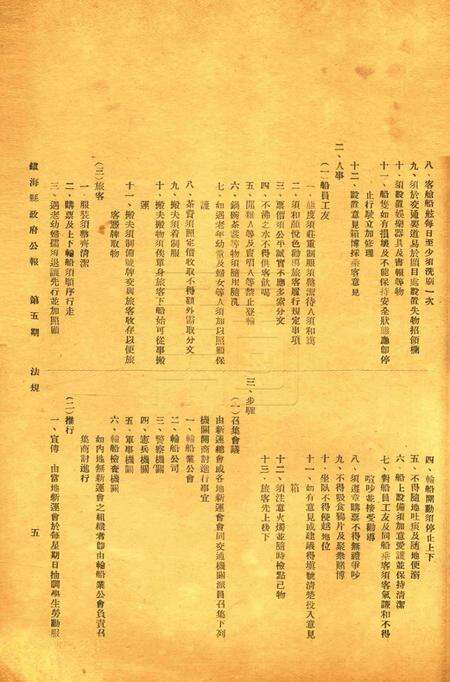 八、客艙船舷每日至少須洗刷一次
九、須於交通要道易於屬目處設置失物招領欄
十、須設置娛樂器具及書報等物
十一、船隻如有損壞及不能保持安全狀態應即停
止行駛立加修理
十二、設置意見箱博採乘客意見
二、人事
(一)船員工友
一、態度須莊重制服須整潔待人須和藹
二、須和顏悅色勸導旅客履行規定事項
三、票價須公平誠實不應多索分文
四、不沸之水不得供客飲喝
五、閒雜人等及賣唱人等禁止登輪
六、鍋碗茶壺等物須隨用隨洗
七、如遇老年幼童及婦女等人須加以照顧保
護
八、茶資須照定價收取不得額外需取分文
九、搬夫須着制服
十、搬夫搬物須依單身旅客下船始可從事搬
運
十一、搬夫須制備號牌交與旅客收存以便旅
客憑牌取物
(三)旅客
一、服裝須整齊清潔
二、購票及上下輪船須順序行走
三、遇老幼婦孺須退讓先行並加照顧
鎮海縣政府公報 第五期 法規
四、輪船開動須停止上下
五、不得隨地吐痰及隨地便溺
六、船上設備須加意愛護並保持清潔
七、對船員工友及同船乘客須客氣謙和不得
喧吵並接受勸導
八、須遵章購票不得無禮爭吵
九、不得吸食鴉片及聚衆賭博
十、坐臥不得侵越地位
十一、如有意見或建議得填號清楚投入意見
箱
十二、須注意火燭並隨時檢點己物
十三、旅客先上後下
三、步驟
(一)召集會議
由新運總會或各地新運會會同交通機關派員召集下列
機關開商討進行事宜
一、輪船業公會
二、輪船公司
三、警察機關
四、憲兵機關
五、軍事機關
六、輪船檢查機關
如內地無新運會之組織者即由輪船業公會負責召
集商討進行
(二)推行
一、宣傳 由當地新運會於每星期日抽調學生勞動服
五